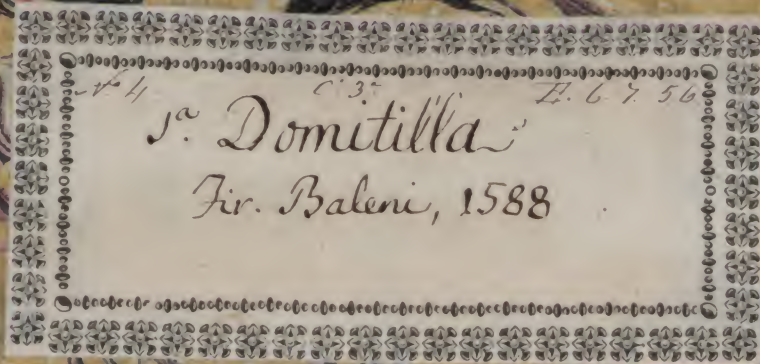 N 4 C. 3a E. 6. 7. 56
Sa. Domitilla
Fir. Baleni, 1588